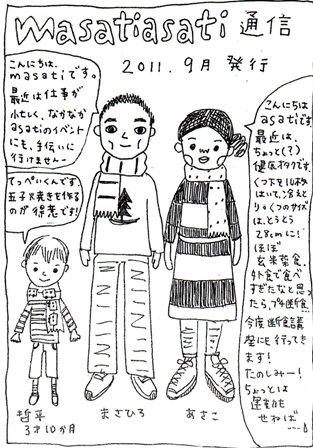 masatiasati 通信
2011.9月 発行
こんにちは。
masatiです。
最近は仕事が
忙しく、なかなか
asatiのイベント
にも、手伝いに
行けません…
てっぺいくんです。
玉子焼きを作る
のが得意です!
こんにちは
asatiです。
最近は、
ちょっと(?)
健康オタクです。
くつ下を10枚
はいて、冷えと
り。くつのサイズ
は、とうとう
28cmに!
ほぼ
玄米菜食、
外食で食べ
すぎたなと思っ
たら、プチ断食…
今度断食講
座にも行ってき
ます!
たのしみー!
ちょっとは
運動も
せねば
……
哲平
3才10か月
まさひろ
あさこ